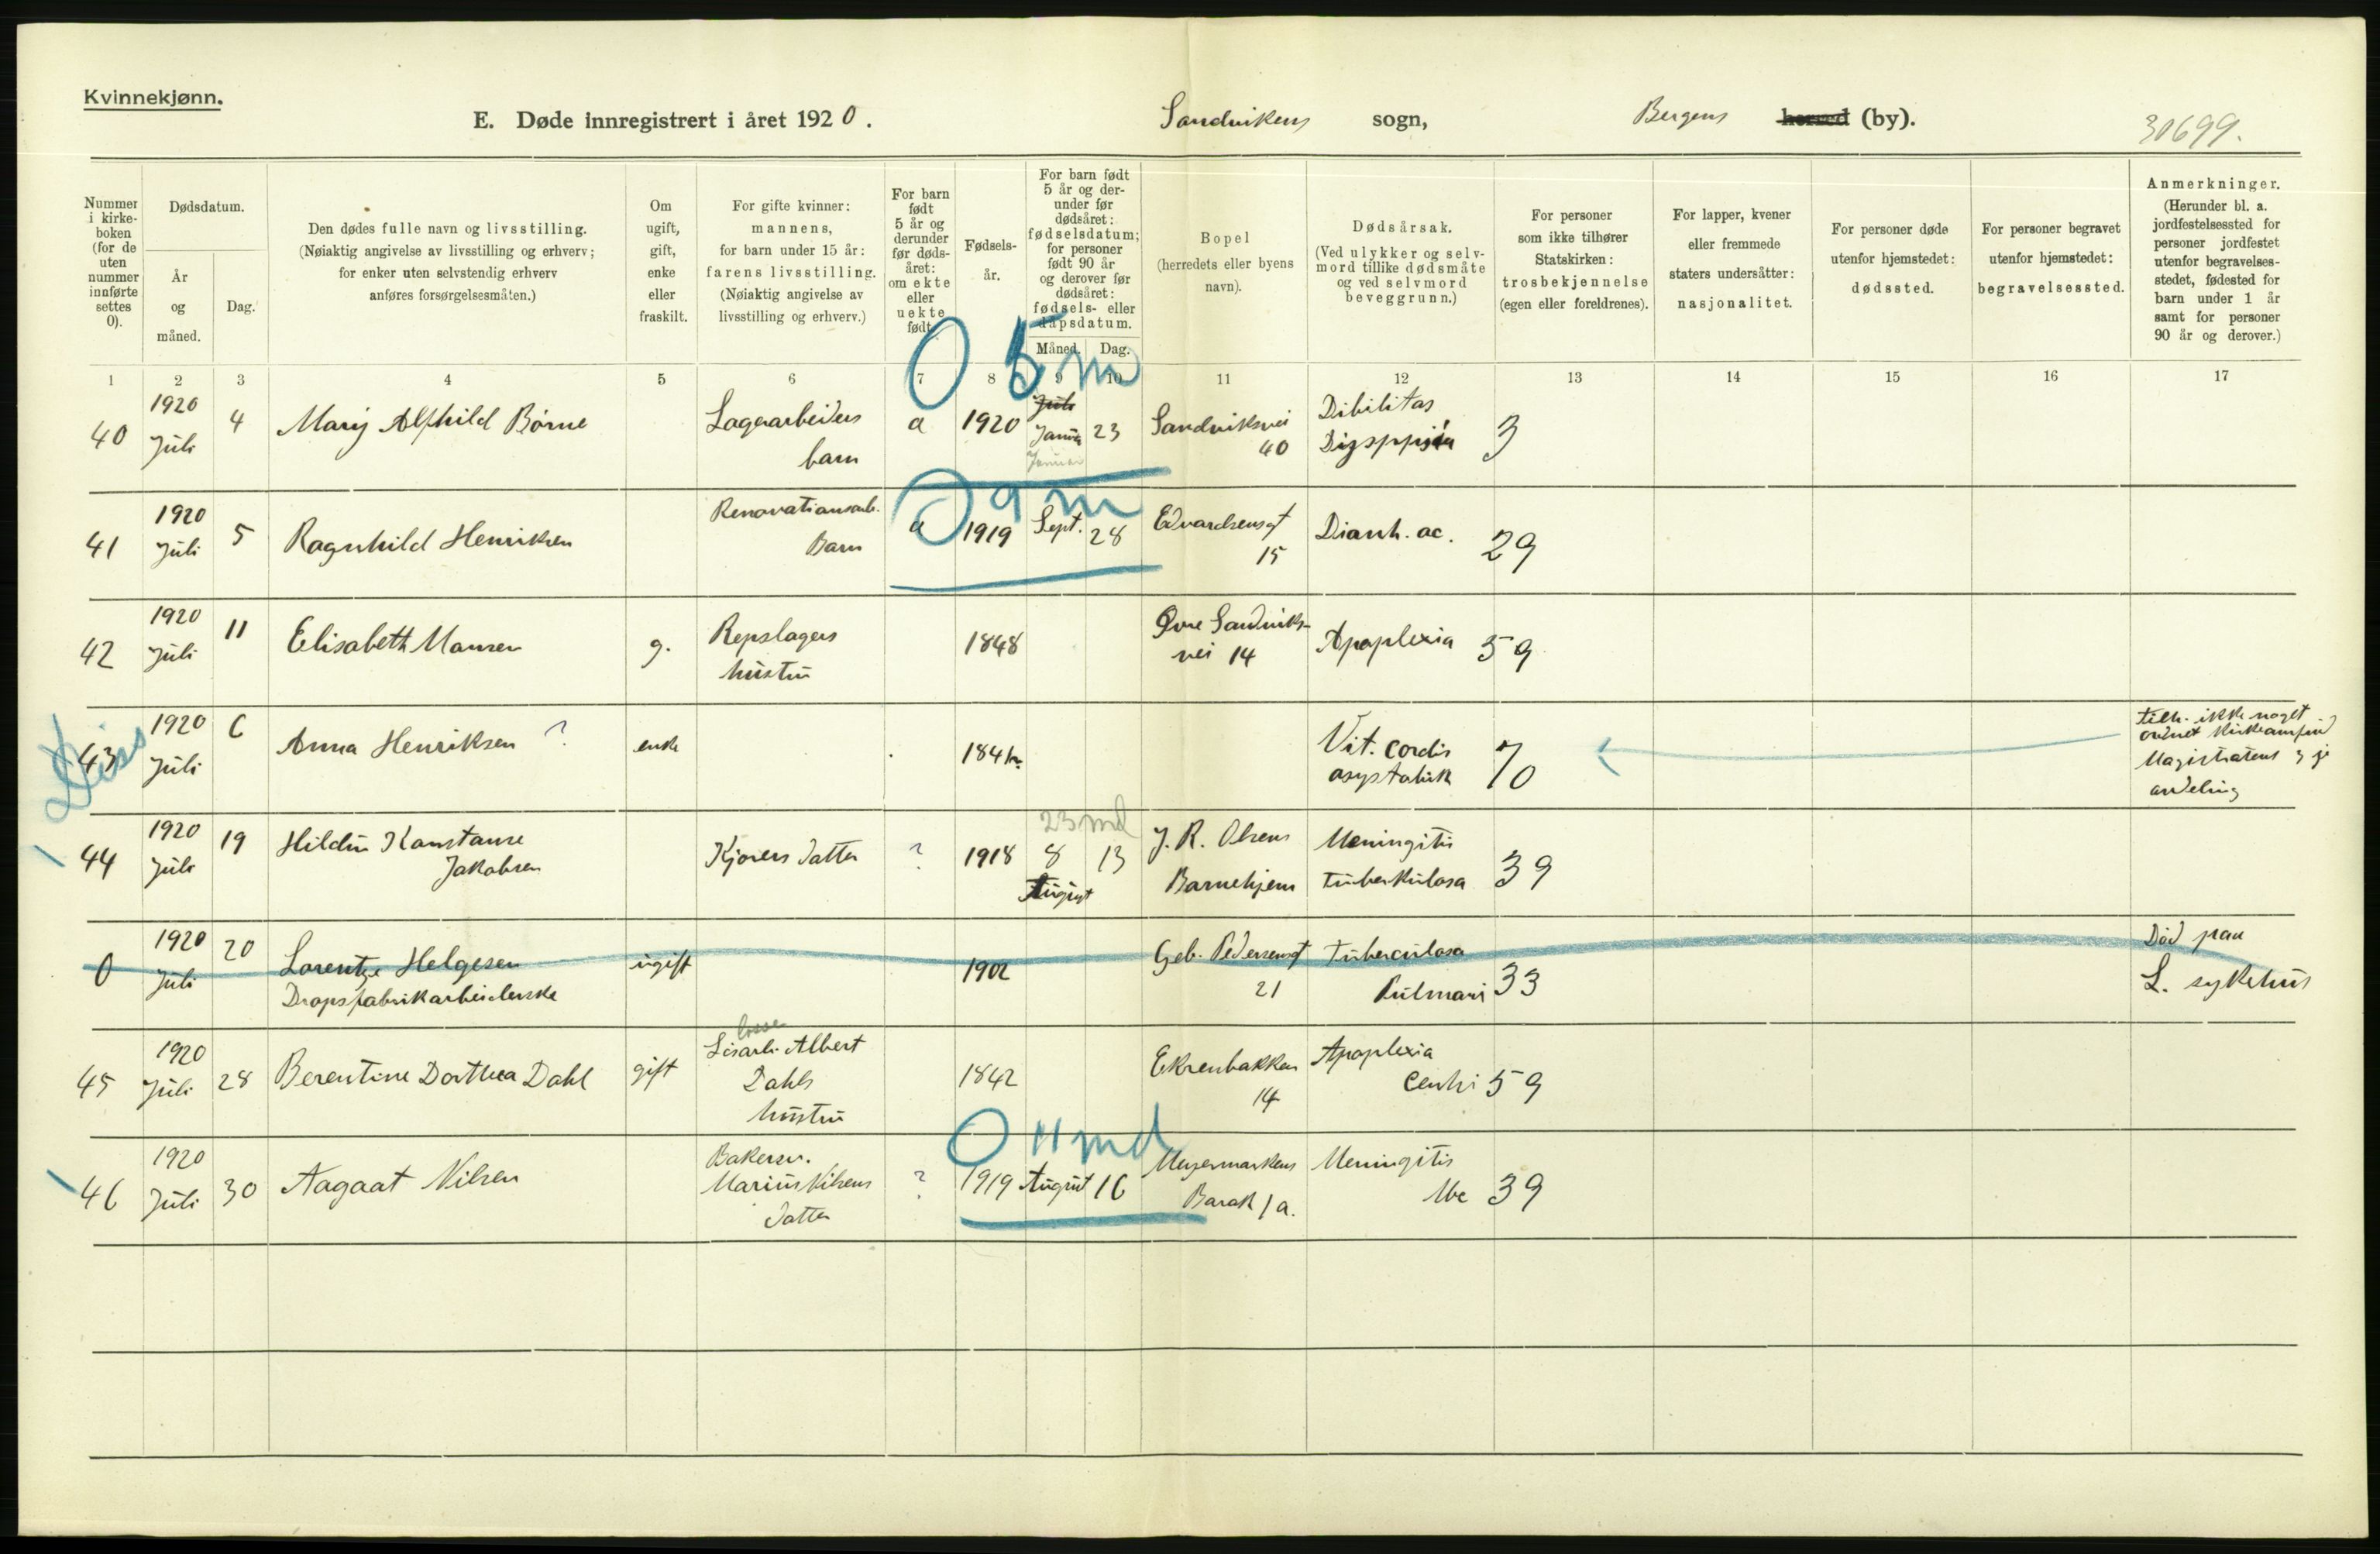 Kvinnekjønn.
E. Døde innregistrert i året 1920.
Sandvikens sogn,
Bergens herred (by).
30699.
Nummer i kirke-boken (for de uten nummer innførte settes 0).
Dødsdatum.
År og måned.
Dag.
Den dødes fulle navn og livsstilling.
(Nøiaktig angivelse av livsstilling og erhverv;
for enker uten selvstendig erhverv
anføres forsørgelsesmåten.)
Om ugift, gift, enke eller fraskilt.
For gifte kvinner:
mannens,
for barn under 15 år:
farens livsstilling.
(Nøiaktig angivelse av
livsstilling og erhverv.)
For barn født 5 år og derunder før døds-året: om ekte eller uekte født.
Fødsels-år.
For barn født 5 år og der-under før dødsåret: fødselsdatum; for personer født 90 år og derover før dødsåret: fødsels- eller dåpsdatum.
Måned. Dag.
Bopel
(herredets eller byens
navn).
Dødsårsak.
(Ved ulykker og selv-
mord tillike dødsmåte
og ved selvmord
beveggrunn.)
For personer
som ikke tilhører
Statskirken:
trosbekjennelse
(egen eller foreldrenes).
For lapper, kvener
eller fremmede
staters undersåtter:
nasjonalitet.
For personer døde
utenfor hjemstedet:
dødssted.
For personer begravet
utenfor hjemstedet:
begravelsessted.
Anmerkninger.
(Herunder bl. a.
jordfestelsessted for
personer jordfestet
utenfor begravelses-
stedet, fødested for
barn under 1 år
samt for personer
90 år og derover.)
1 2 3 4 5 6 7 8 9 10 11 12 13 14 15 16 17
0 5 m
40 1920 Juli 4 Marij Alfhild Børne Lagerarbeiders barn a 1920 Juli Januar 23 Sandviksvei 40 Dibilitas Digsppsia 3
Januar
0 9 m
41 1920 Juli 5 Ragnhild Henriksen Renovationsarb. Barn a 1919 Sept. 28 Edvardsensgt 15 Diarrh. ac. 29
42 1920 Juli 11 Elisabeth Mansen g. Repslagers hustru 1848 Øvre Sandviks-vei 14 Apoplexia 59
Diss
43 1920 Juli 6 Anna Henriksen ? enke 184 Vit. cordis asystolisk 70 tilh. ikke noget ordnet Magistratens avdeling
23 md
44 1920 Juli 19 Hildur Konstanse Jakobsen datter ? 1918 8 August 13 J. R. Olsens Barnehjem Meningitis tuberkulosa 39
0 1920 Juli 20 Lorentze Helgesen Dropsfabrikarbeiderske ugift 1902 Geb. Pedersensgt 21 Tuberculosa Pulmari 33 Død paa L. sykehus
losse
45 1920 Juli 28 Berentine Dorthea Dahl gift Albert Dahls hustru 1842 Ekrenbakken 14 Apoplexia Cerebri 59
0 11 md
46 1920 Juli 30 Aagaat Nilsen Bakersv. Marius Nilsens datter ? 1919 August 16 Meyermarkens Barak 1 a. Meningitis tbc 39